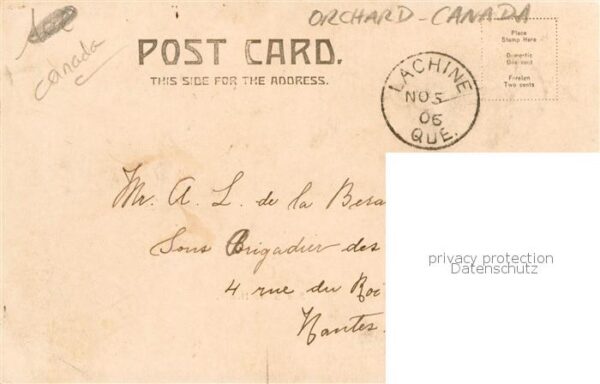 ORCHARD - CANADA
Canada
POST CARD.
THIS SIDE FOR THE ADDRESS.
Place
Stamp Here
Domestic
One cent
Foreign
Two cents
LACHINE
NO 5
06
QUE.
Mr. A. L. de la Besa
Sous Brigadier des
4 rue du Roi
Nantes.
privacy protection
Datenschutz